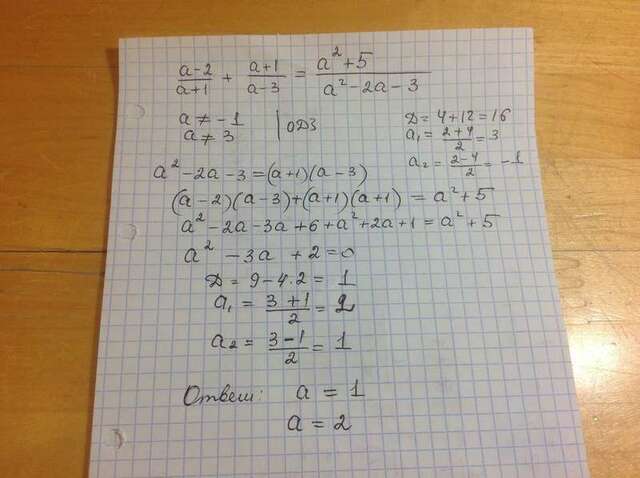 (a-2)/(a+1) + (a+1)/(a-3) = (a²+5)/(a²-2a-3)
a ≠ -1
a ≠ 3 | ОДЗ
Д = 4+12=16
a₁ = (2+4)/2 = 3
a₂ = (2-4)/2 = -1
a²-2a-3=(a+1)(a-3)
(a-2)(a-3)+(a+1)(a+1) = a²+5
a²-2a-3a+6+a²+2a+1=a²+5
a² -3a +2=0
Д = 9-4·2= 1
a₁ = (3+1)/2 = 2
a₂ = (3-1)/2 = 1
Ответ: a = 1
a = 2